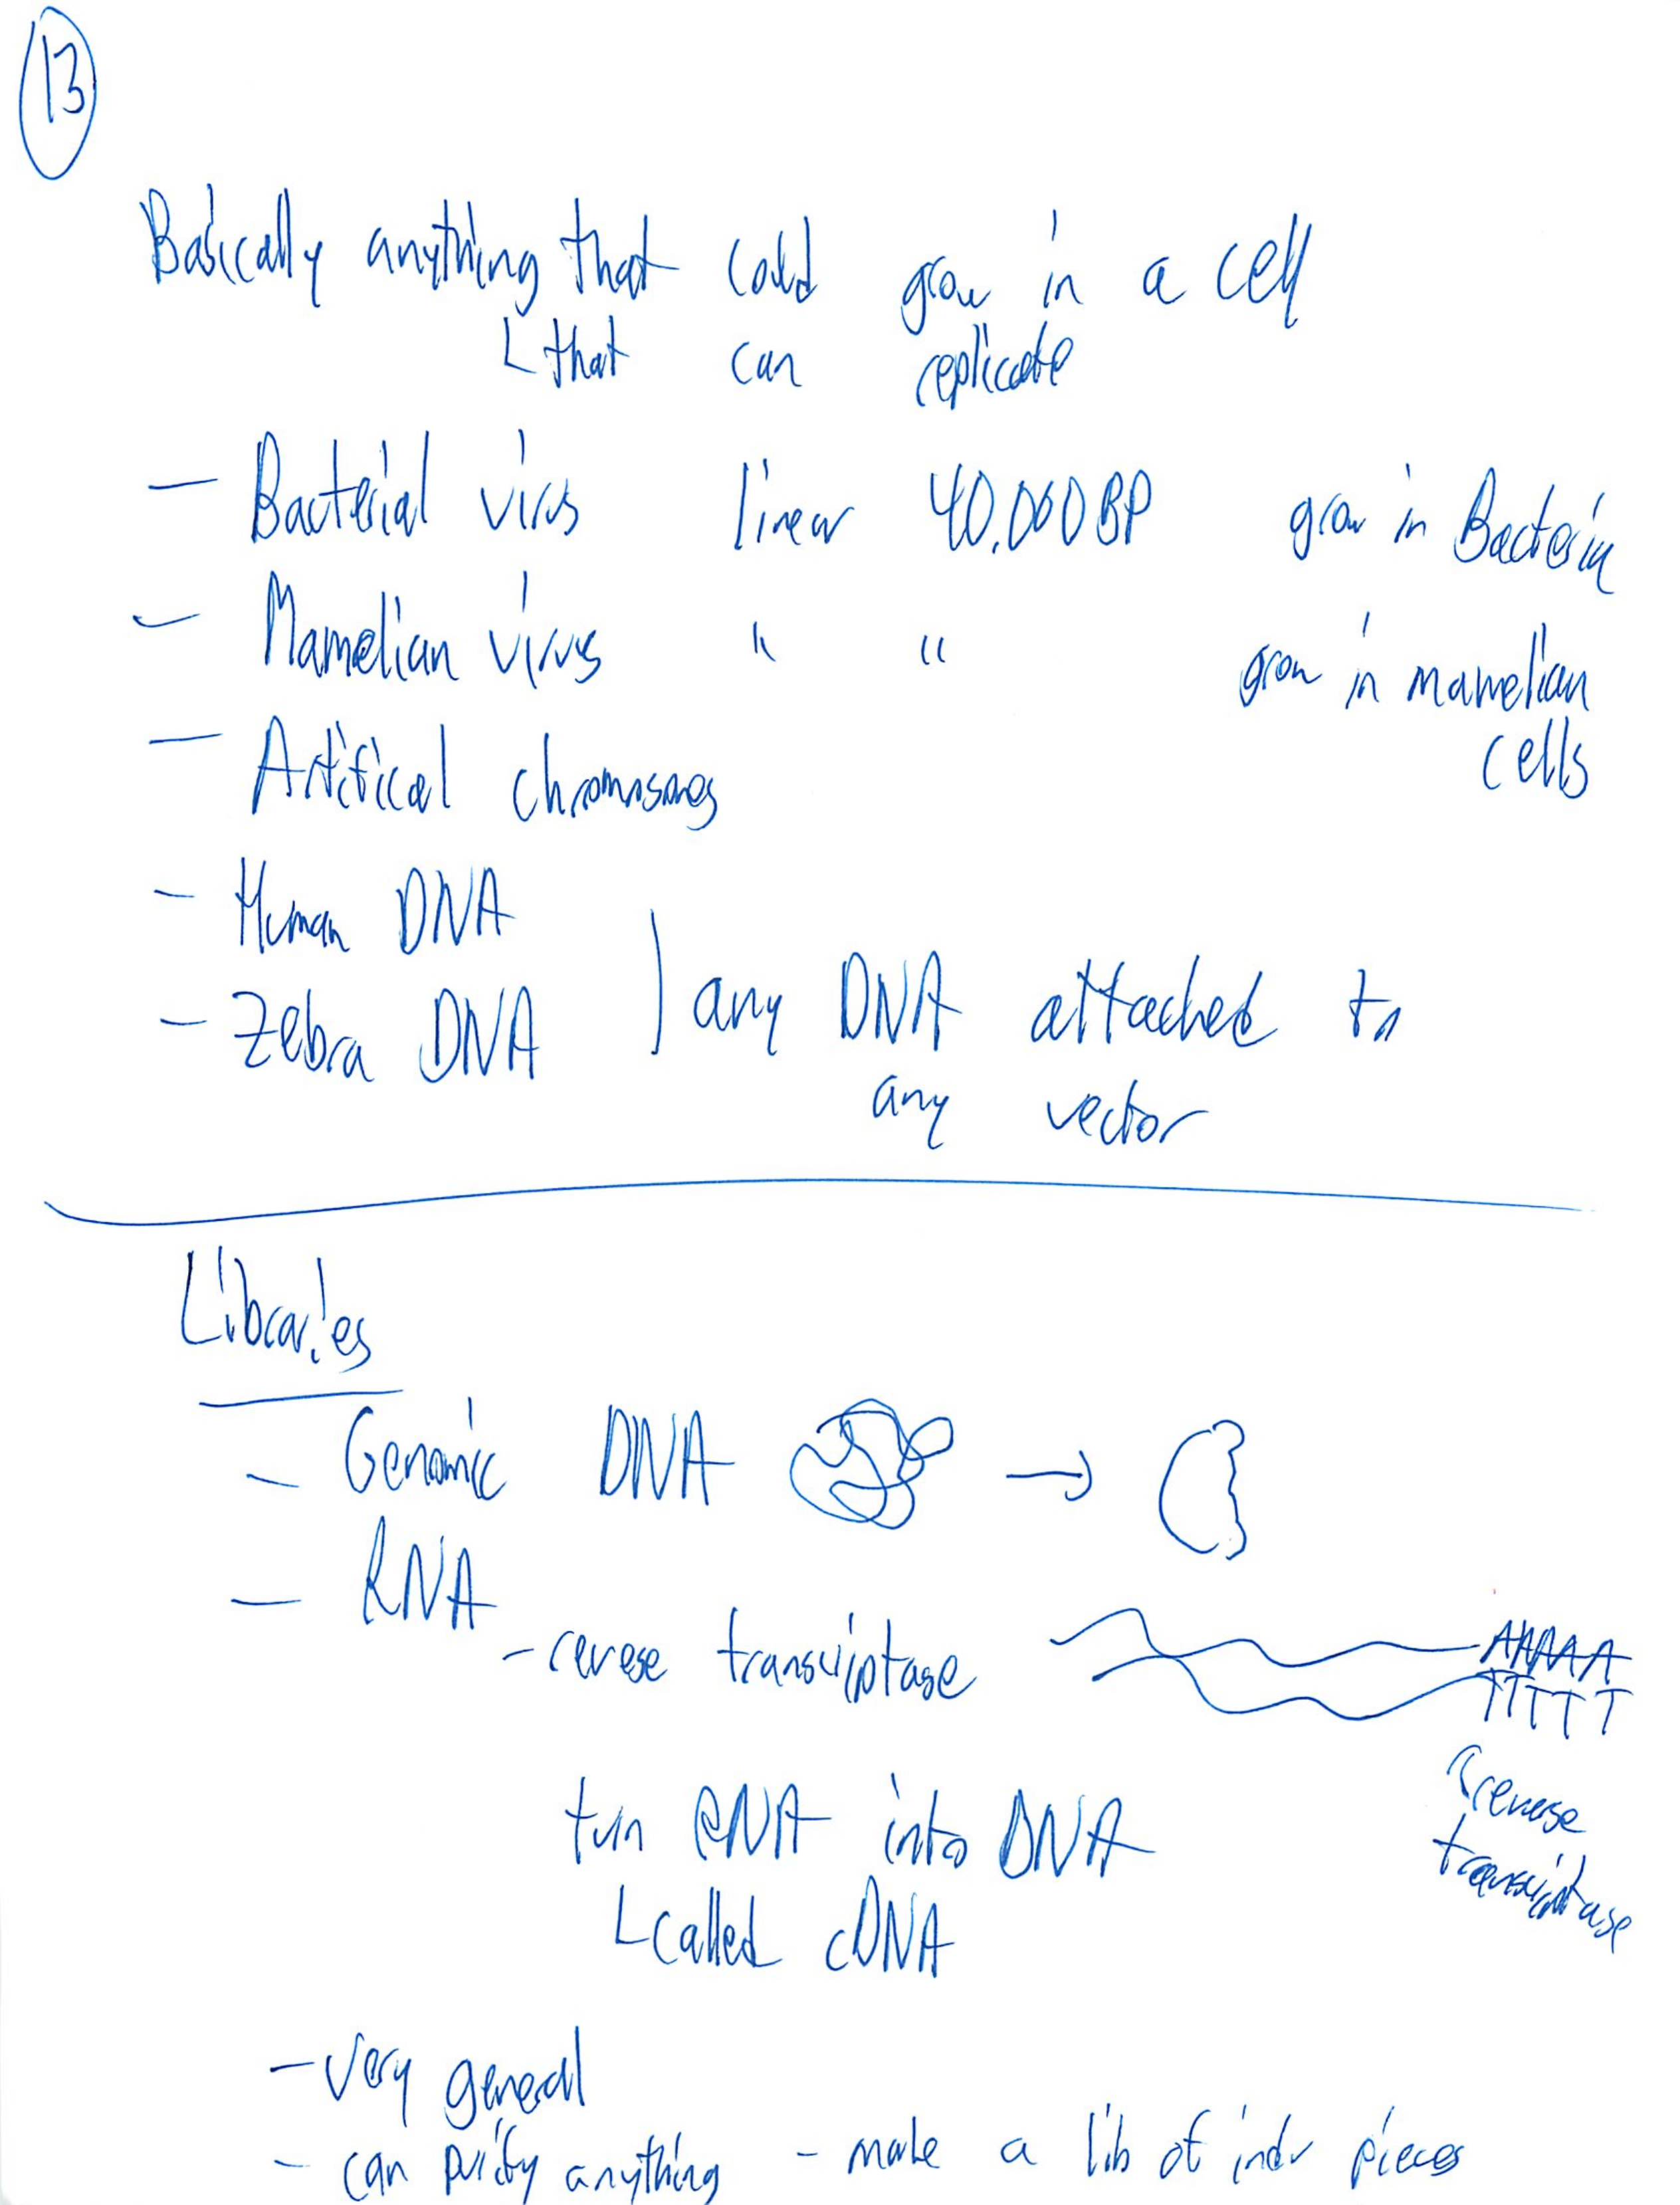 13
Basically anything that could grow in a cell
that can replicate
- Bacterial virus linear 40,000 BP grow in Bacteria
- Mamelian virus " " grow in mamelian
cells
- Artifical chromosomes
- Human DNA
- Zebra DNA any DNA attached to
any vector
Libraries
- Genomic DNA →
- RNA
- reverse transcriptase AAAAA
TTTTT
reverse
transcriptase
turn RNA into DNA
called cDNA
- very general
- can purify anything - make a lib of indv pieces